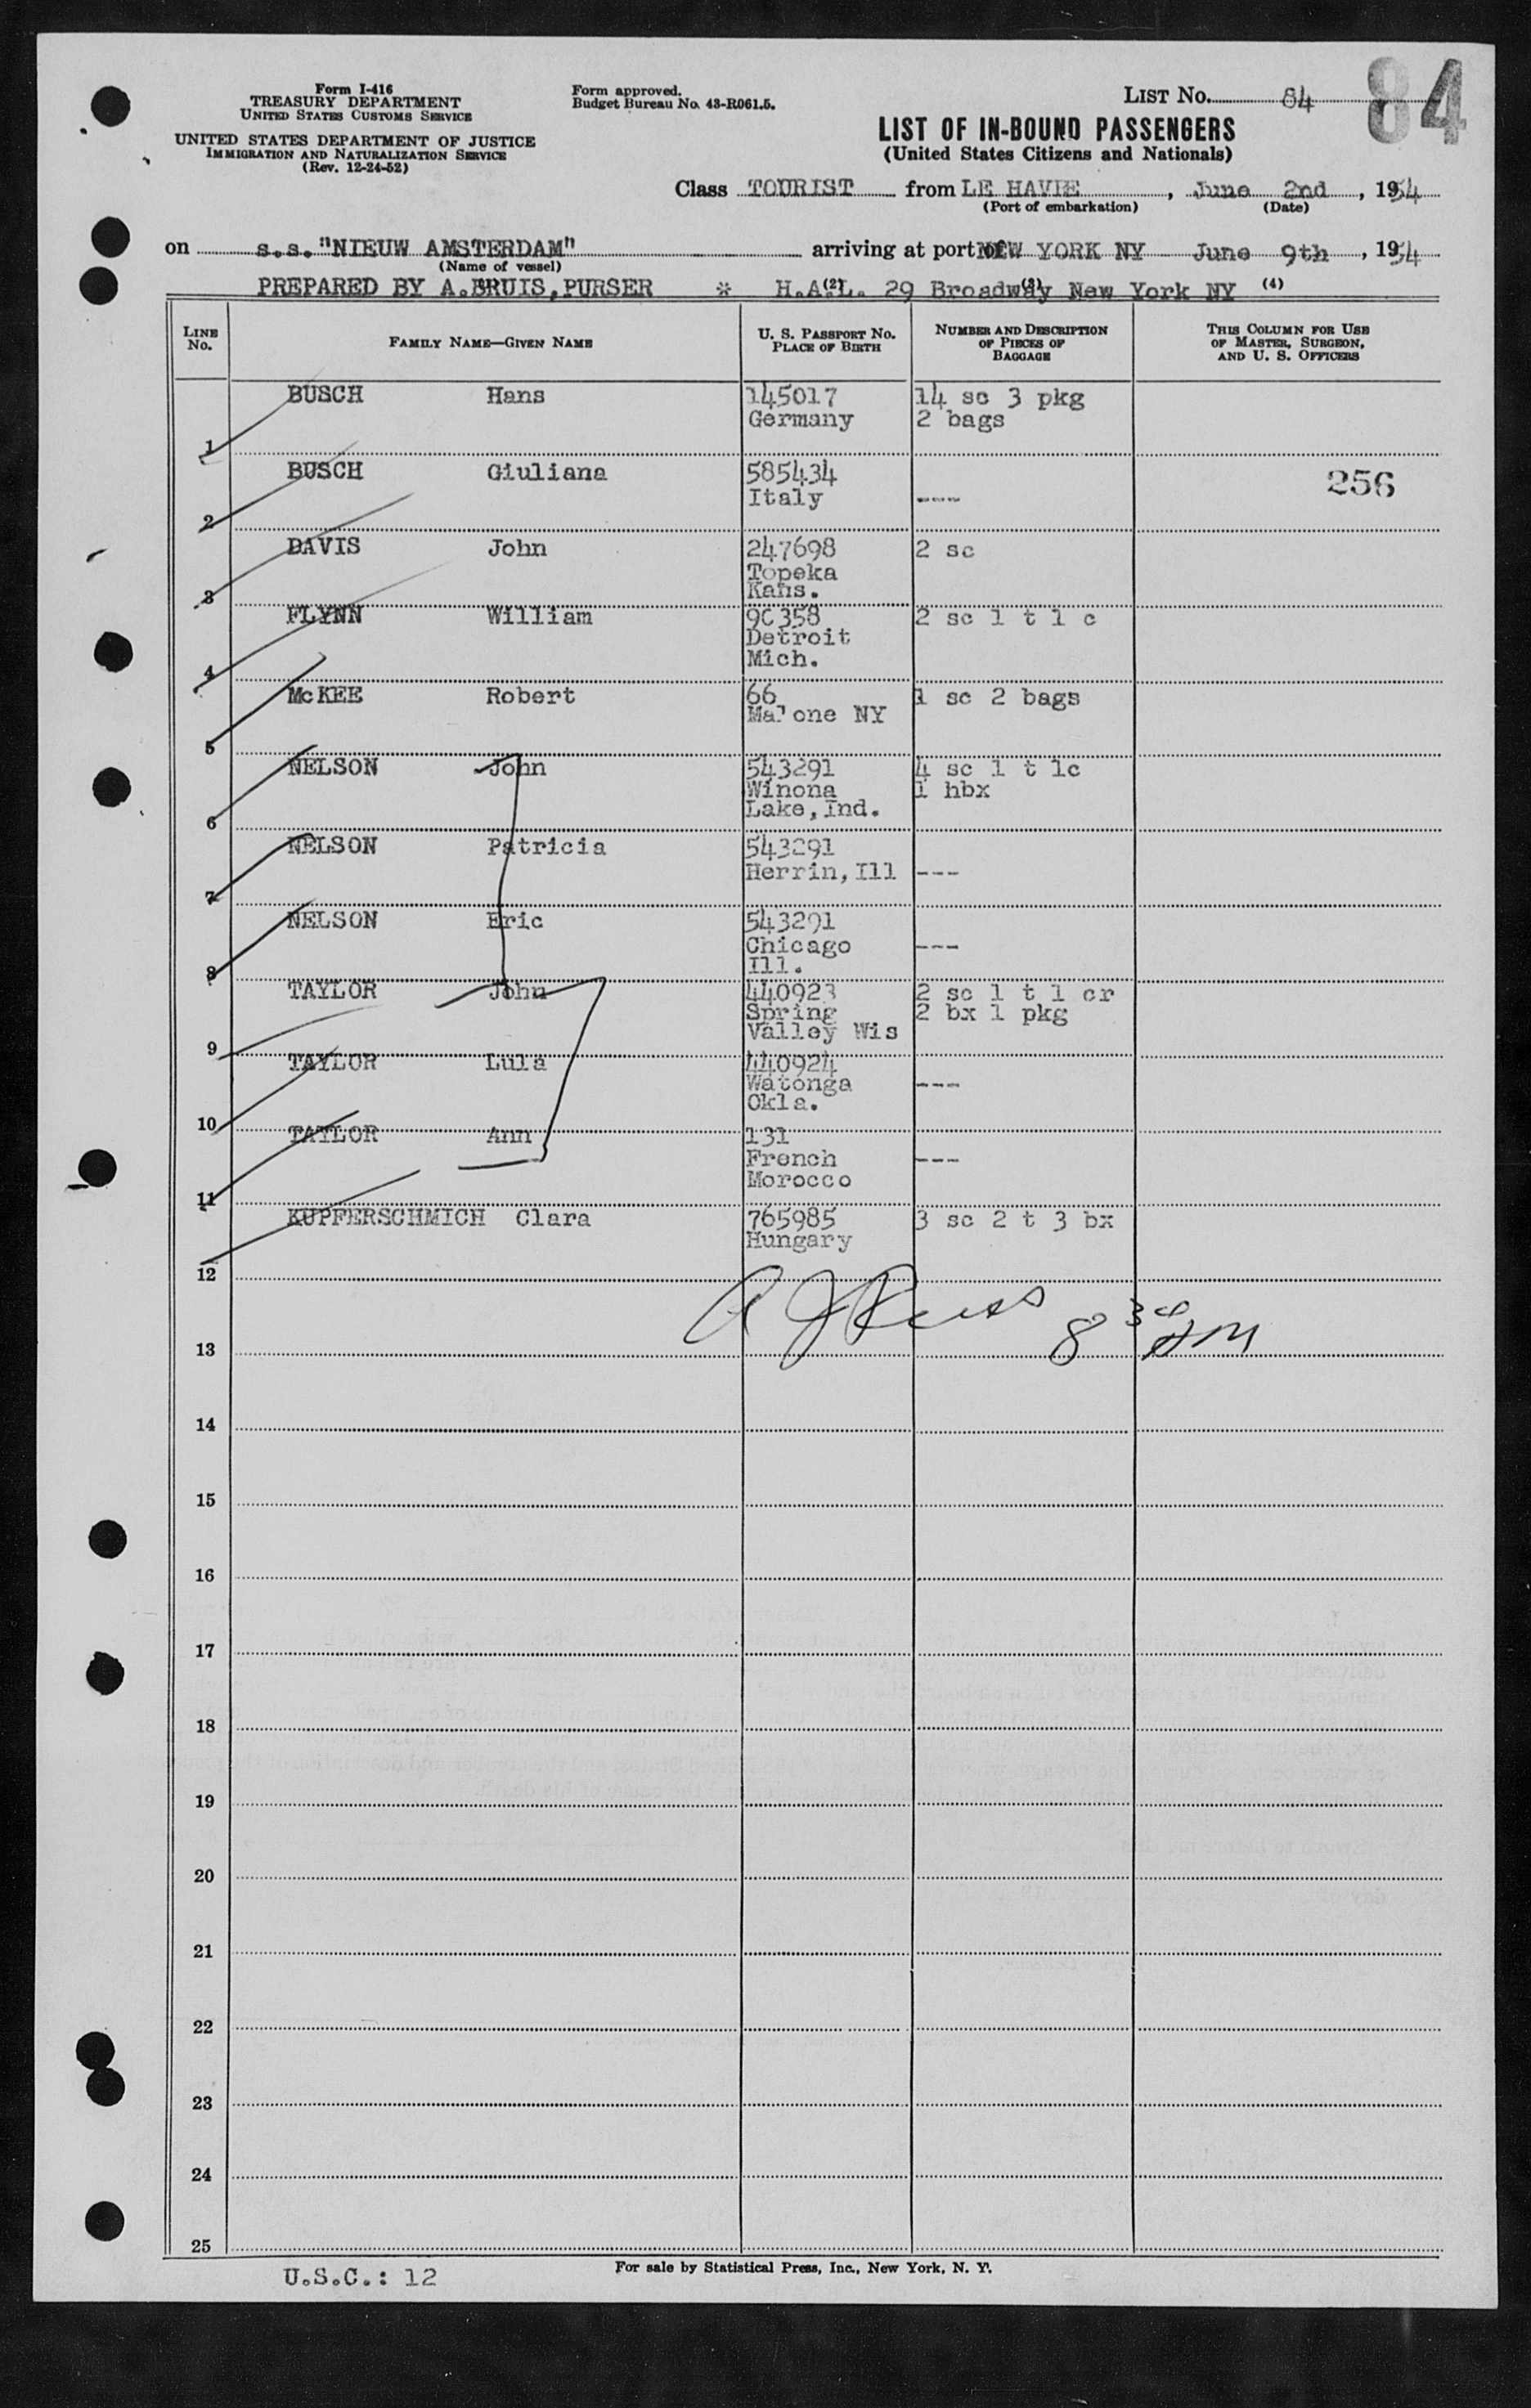 Form I-416
TREASURY DEPARTMENT
UNITED STATES CUSTOMS SERVICE
UNITED STATES DEPARTMENT OF JUSTICE
IMMIGRATION AND NATURALIZATION SERVICE
(Rev. 12-24-52)
Form approved.
Budget Bureau No. 43-R061.5.
LIST No. 84
84
LIST OF IN-BOUND PASSENGERS
(United States Citizens and Nationals)
Class TOURIST from LE HAVRE, June 2nd, 1954
(Port of embarkation) (Date)
on s.s. "NIEUW AMSTERDAM" arriving at port of NEW YORK NY June 9th, 1954
(Name of vessel)
PREPARED BY A.BRUIS, PURSER * H.A.L. 29 Broadway New York NY
(2) (3) (4)
LINE No. FAMILY NAME—GIVEN NAME U. S. PASSPORT NO. PLACE OF BIRTH NUMBER AND DESCRIPTION OF PIECES OF BAGGAGE THIS COLUMN FOR USE OF MASTER, SURGEON, AND U. S. OFFICERS
BUSCH Hans 145017 14 sc 3 pkg
Germany 2 bags
1
BUSCH Giuliana 585434
256
Italy ---
2
DAVIS John 247698 2 sc
Topeka
Kans.
3
FLYNN William 9C358 2 sc 1 t 1 c
Detroit
4 Mich.
McKEE Robert 66 1 sc 2 bags
Malone NY
5
NELSON John 543291 4 sc 1 t 1c
Winona 1 hbx
Lake, Ind.
6
NELSON Patricia 543291
Herrin, Ill ---
7
NELSON Eric 543291
Chicago ---
8 Ill.
TAYLOR John 440923 2 sc 1 t 1 cr
Spring 2 bx 1 pkg
Valley Wis
9
TAYLOR Lula 440924
Watonga ---
Okla.
10
TAYLOR Ann 131
French ---
Morocco
11
KUPFERSCHMICH Clara 765985 3 sc 2 t 3 bx
Hungary
12
8 30 AM
13
14
15
16
17
18
19
20
21
22
23
24
25
U.S.C.: 12
For sale by Statistical Press, Inc., New York, N. Y.